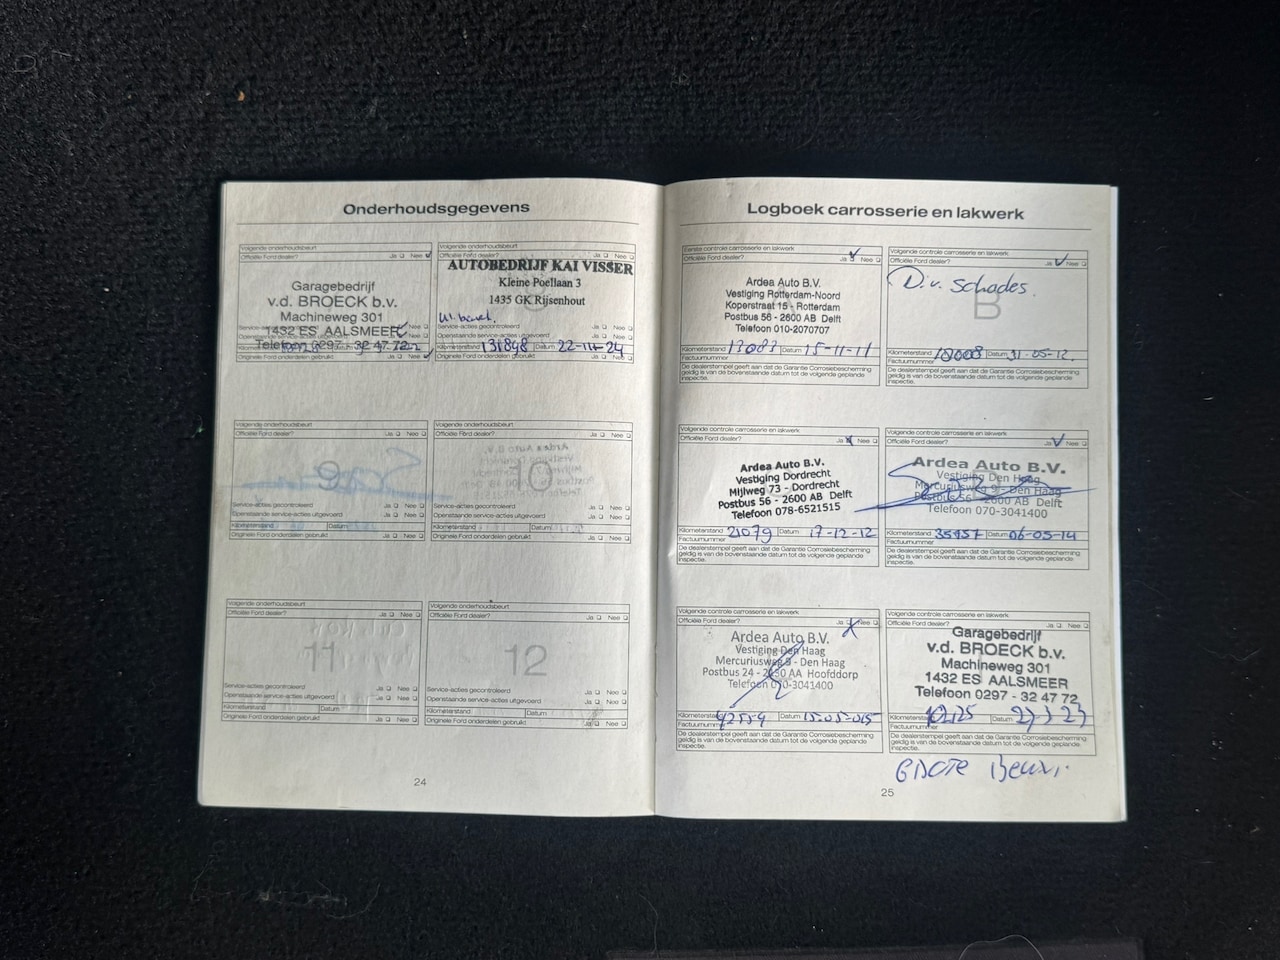 Onderhoudsgegevens
Volgende onderhoudsbeurt
Officiële Ford dealer? Ja Nee
Garagebedrijf
v.d. BROECK b.v.
Machineweg 301
1432 ES AALSMEER
Telefoon 0297 - 32 47 72
Originele Ford onderdelen gebruikt Ja Nee
Volgende onderhoudsbeurt
Officiële Ford dealer? Ja Nee
AUTOBEDRIJF KAI VISSER
Kleine Poellaan 3
1435 GK Rijsenhout
Service-acties gecontroleerd Ja Nee
Openstaande service-acties uitgevoerd Ja Nee
Kilometerstand 131848 Datum 22-11-24
Originele Ford onderdelen gebruikt Ja Nee
Volgende onderhoudsbeurt
Officiële Ford dealer? Ja Nee
Service-acties gecontroleerd Ja Nee
Openstaande service-acties uitgevoerd Ja Nee
Kilometerstand Datum
Originele Ford onderdelen gebruikt Ja Nee
Volgende onderhoudsbeurt
Officiële Ford dealer? Ja Nee
10
Service-acties gecontroleerd Ja Nee
Openstaande service-acties uitgevoerd Ja Nee
Kilometerstand Datum
Originele Ford onderdelen gebruikt Ja Nee
Volgende onderhoudsbeurt
Officiële Ford dealer? Ja Nee
11
Service-acties gecontroleerd Ja Nee
Openstaande service-acties uitgevoerd Ja Nee
Kilometerstand Datum
Originele Ford onderdelen gebruikt Ja Nee
Volgende onderhoudsbeurt
Officiële Ford dealer? Ja Nee
12
Service-acties gecontroleerd Ja Nee
Openstaande service-acties uitgevoerd Ja Nee
Kilometerstand Datum
Originele Ford onderdelen gebruikt Ja Nee
24
Logboek carrosserie en lakwerk
Eerste controle carrosserie en lakwerk
Officiële Ford dealer? Ja Nee
Ardea Auto B.V.
Vestiging Rotterdam-Noord
Koperstraat 15 - Rotterdam
Postbus 56 - 2600 AB Delft
Telefoon 010-2070707
Kilometerstand 13087 Datum 15-11-11
Factuurnummer
De dealerstempel geeft aan dat de Garantie Corrosiebescherming
geldig is van de bovenstaande datum tot de volgende geplande
inspectie.
Volgende controle carrosserie en lakwerk
Officiële Ford dealer? Ja Nee
D.v. Schades.
B
Kilometerstand Datum 31-05-12.
Factuurnummer
De dealerstempel geeft aan dat de Garantie Corrosiebescherming
geldig is van de bovenstaande datum tot de volgende geplande
inspectie.
Volgende controle carrosserie en lakwerk
Officiële Ford dealer? Ja Nee
Ardea Auto B.V.
Vestiging Dordrecht
Mijlweg 73 - Dordrecht
Postbus 56 - 2600 AB Delft
Telefoon 078-6521515
Kilometerstand 21079 Datum 17-12-12
Factuurnummer
De dealerstempel geeft aan dat de Garantie Corrosiebescherming
geldig is van de bovenstaande datum tot de volgende geplande
inspectie.
Volgende controle carrosserie en lakwerk
Officiële Ford dealer? Ja Nee
Ardea Auto B.V.
Vestiging Den Haag
Mercuriusweg 9 - Den Haag
Postbus 56 - 2600 AB Delft
Telefoon 070-3041400
Kilometerstand 35957 Datum 06-05-14
Factuurnummer
De dealerstempel geeft aan dat de Garantie Corrosiebescherming
geldig is van de bovenstaande datum tot de volgende geplande
inspectie.
Volgende controle carrosserie en lakwerk
Officiële Ford dealer? Ja Nee
Ardea Auto B.V.
Vestiging Den Haag
Mercuriusweg 9 - Den Haag
Postbus 24 - 2130 AA Hoofddorp
Telefoon 070-3041400
Kilometerstand 42559 Datum 15-05-015
Factuurnummer
De dealerstempel geeft aan dat de Garantie Corrosiebescherming
geldig is van de bovenstaande datum tot de volgende geplande
inspectie.
Volgende controle carrosserie en lakwerk
Officiële Ford dealer? Ja Nee
Garagebedrijf
v.d. BROECK b.v.
Machineweg 301
1432 ES AALSMEER
Telefoon 0297 - 32 47 72
Kilometerstand Datum
Factuurnummer
De dealerstempel geeft aan dat de Garantie Corrosiebescherming
geldig is van de bovenstaande datum tot de volgende geplande
inspectie.
GROTE Beurt.
25